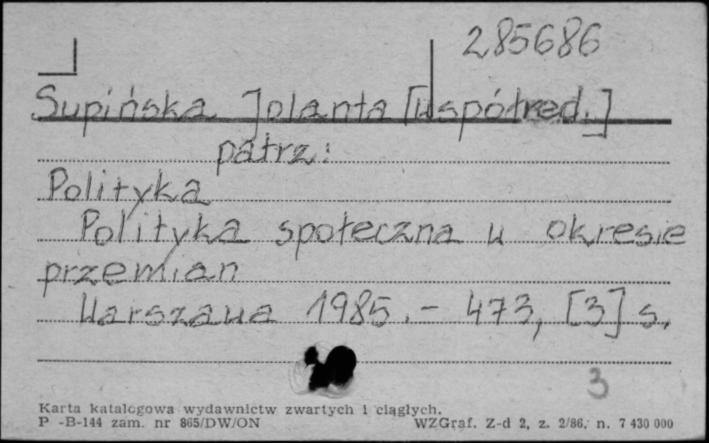 285686
Supińska Jolanta [współred.]
patrz:
Polityka
Polityka społeczna w okresie
przemian
Warszawa 1985.- 473, [3] s.
3
Karta katalogowa wydawnictw zwartych i ciągłych.
P -B-144 zam. nr 865/DW/ON WZGraf. Z-d 2, z. 2/86, n. 7 430 000